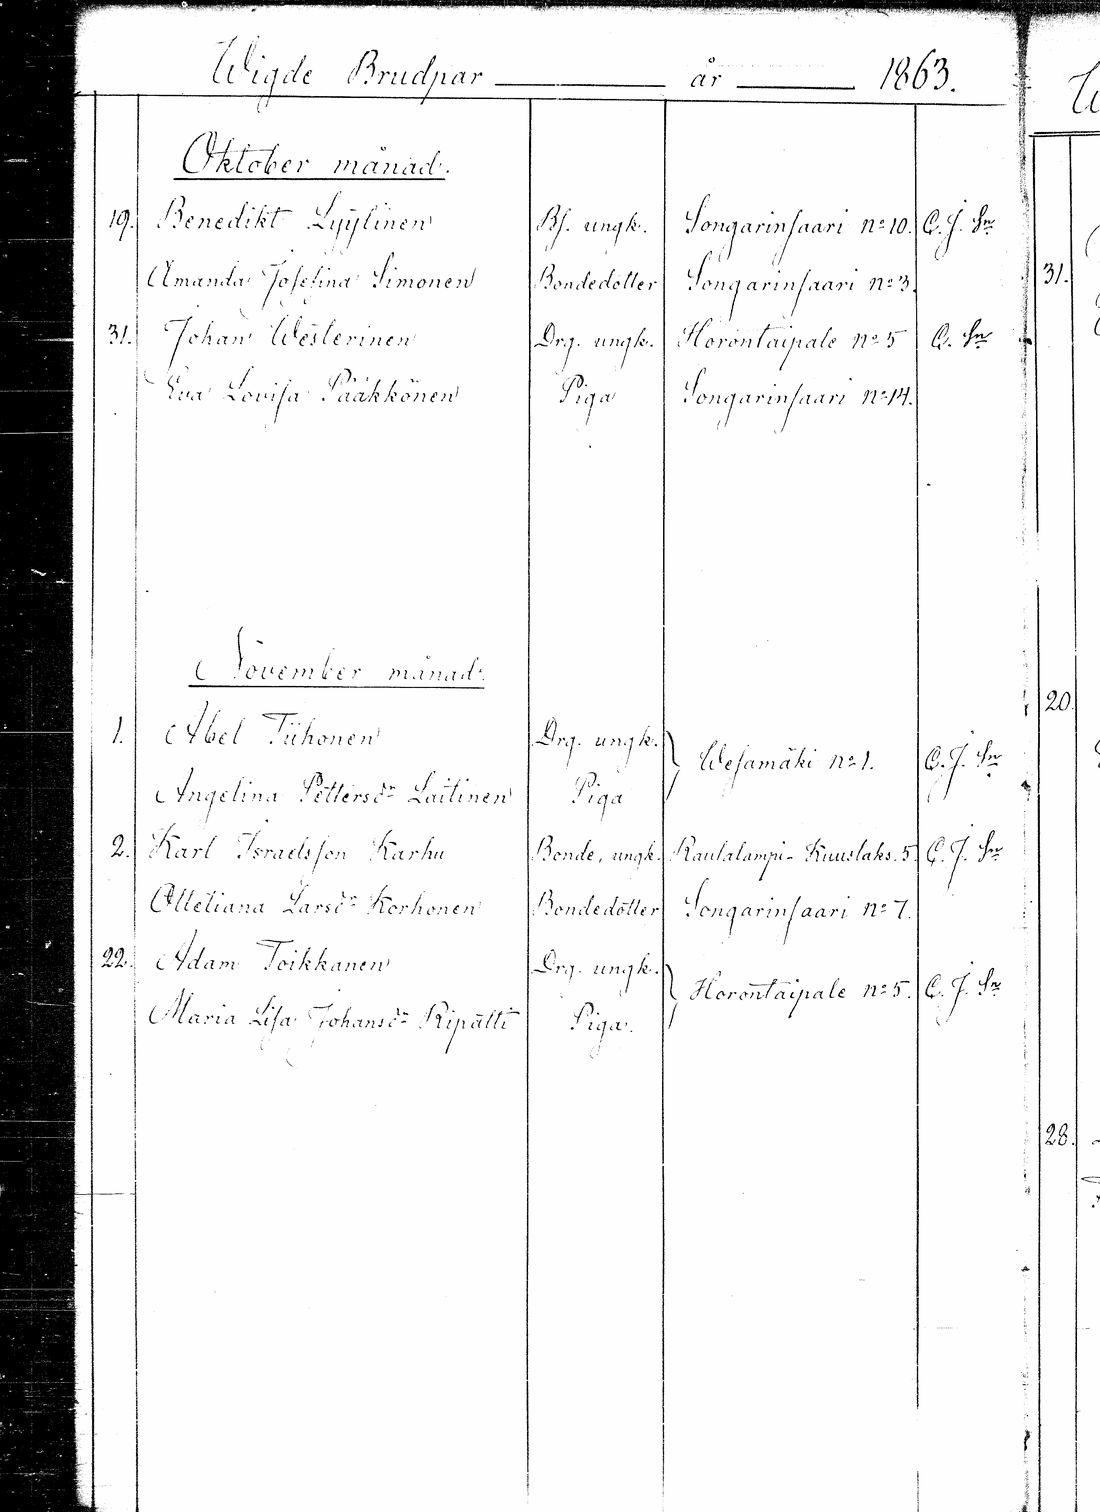 Wigde Brudpar år 1863.
Oktober månad.
19. Benedikt Lyytinen Bs. ungk. Songarinsaari No 10. C. J. Sn
Amanda Josefina Simonen Bondedotter Songarinsaari No 3.
31. Johan Westerinen Drg. ungk. Horontaipale No 5 C. Sn
Eva Lovisa Pääkkönen Piga Songarinsaari No 14.
November månad.
1. Abel Tiihonen Drg. ungk.
Wesamäki No 1. C. J. Sn
Angelina Pettersdr Laitinen Piga
2. Karl Israelsson Karhu Bonde, ungk. Rautalampi - Kuuslaks. 5. C. J. Sn
Ottetiana Larsdr Korhonen Bondedotter Songarinsaari No 7.
22. Adam Toikkanen Drg. ungk.
Horontaipale No 5. C. J. Sn
Maria Lisa Johansdr Ripatti Piga.
31.
20.
28.